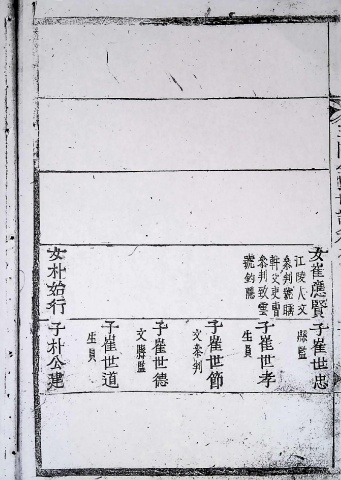 女崔應賢
江陵人文
叅判號睡
軒父吏曹
叅判致雲
號釣隱
子崔世忠
縣監
子崔世孝
生員
子崔世節
文叅判
子崔世德
文縣監
子崔世道
生員
女朴始行
子朴公建